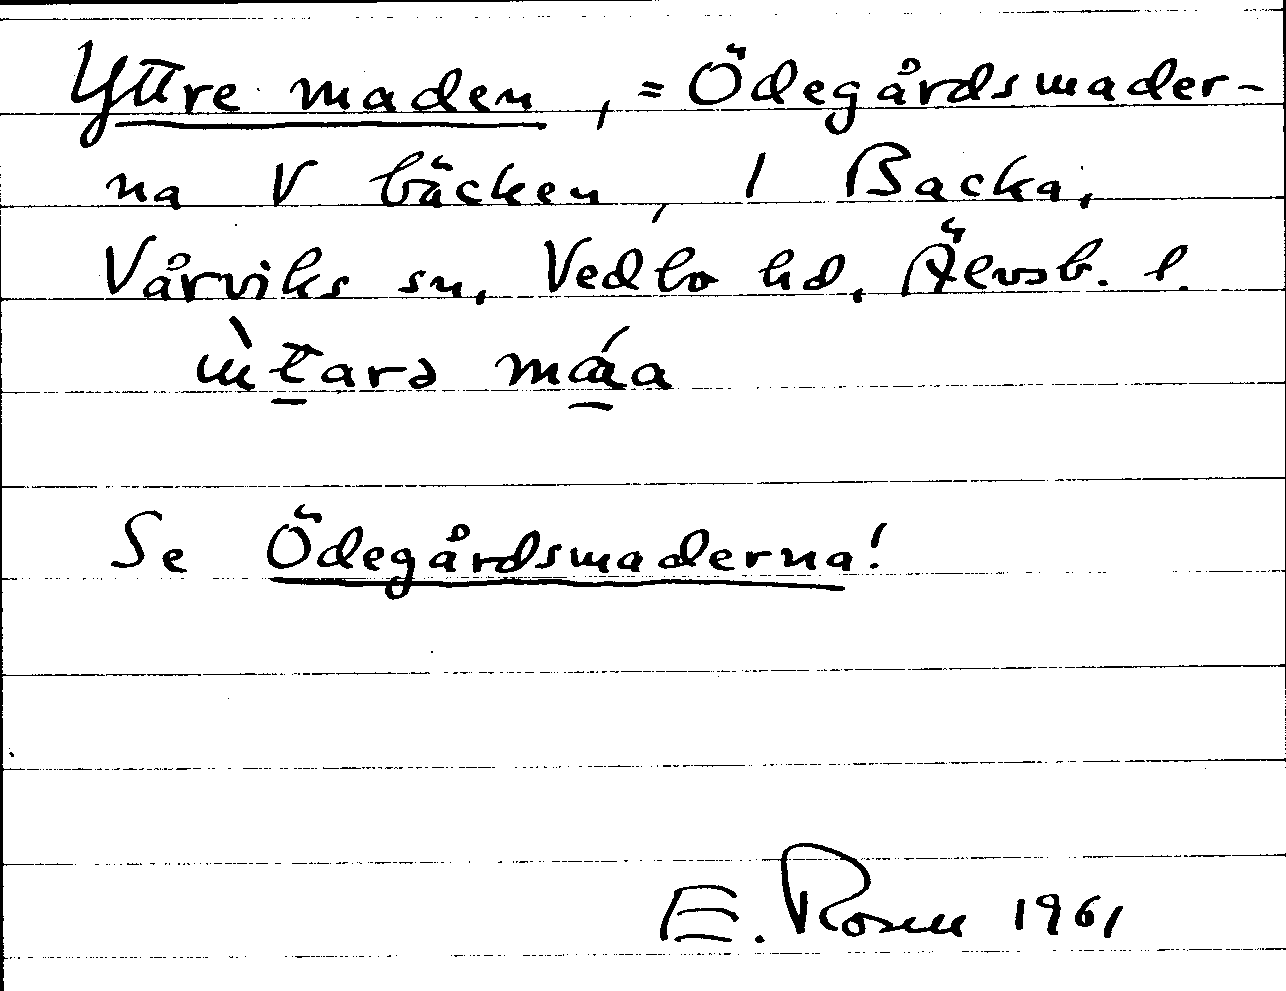 Yttre maden, = Ödegårdsmader-
na V bäcken, 1 Backa,
Vårviks sn, Vedbo hd, Älvsb. l.
máa
Se Ödegårdsmaderna!
E. Rosell 1961